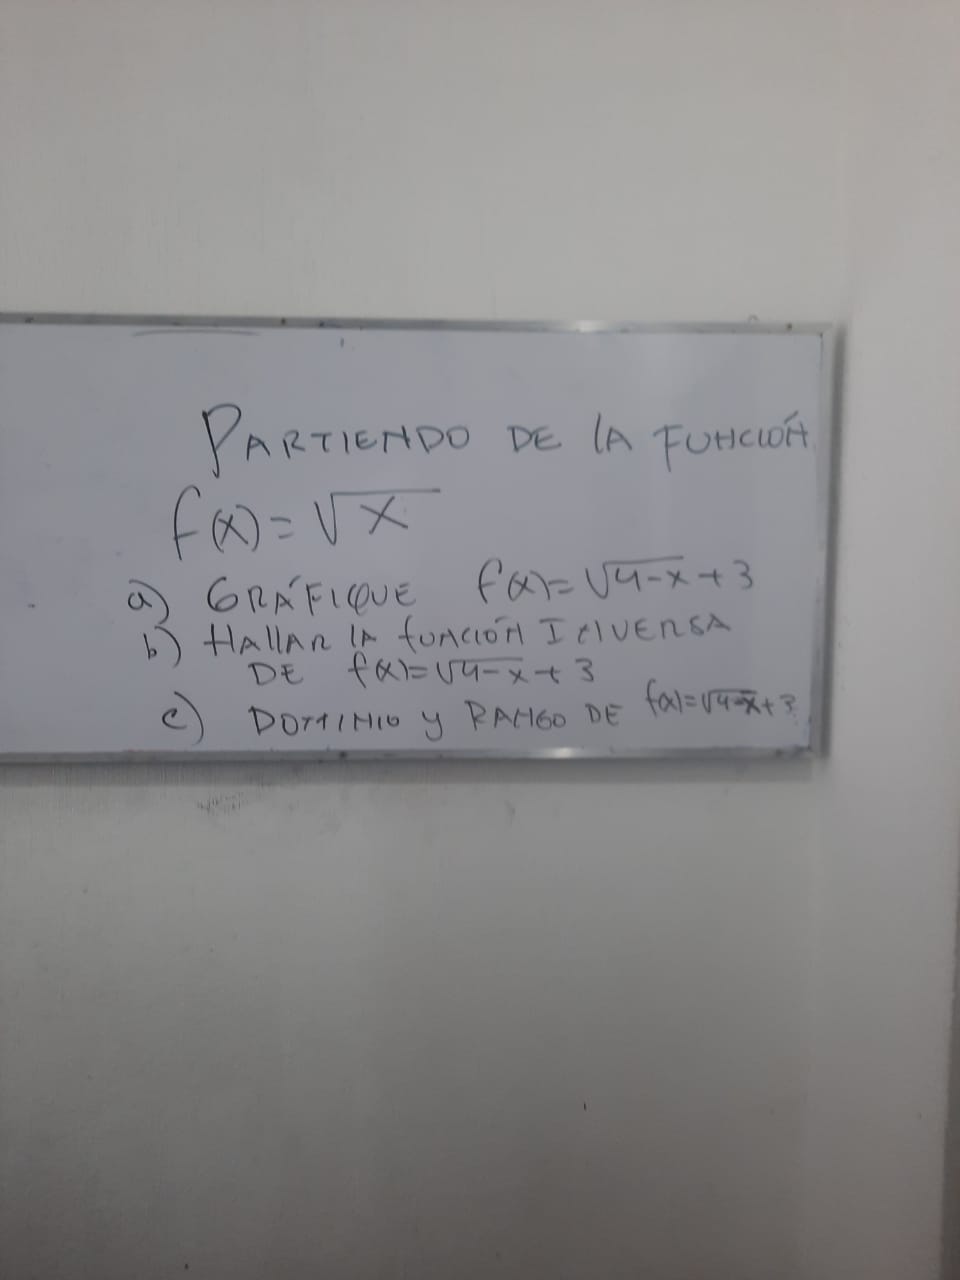 PARTIENDO DE LA FUNCIÓN
f(x)=√x
a) GRÁFIQUE f(x)=√4-x+3
b) HALLAR LA FUNCIÓN INVERSA
DE f(x)=√4-x+3
c) DOMINIO y RANGO DE f(x)=√4-x+3